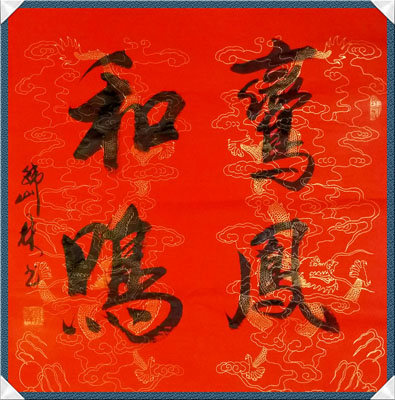 鸞鳳
和鳴